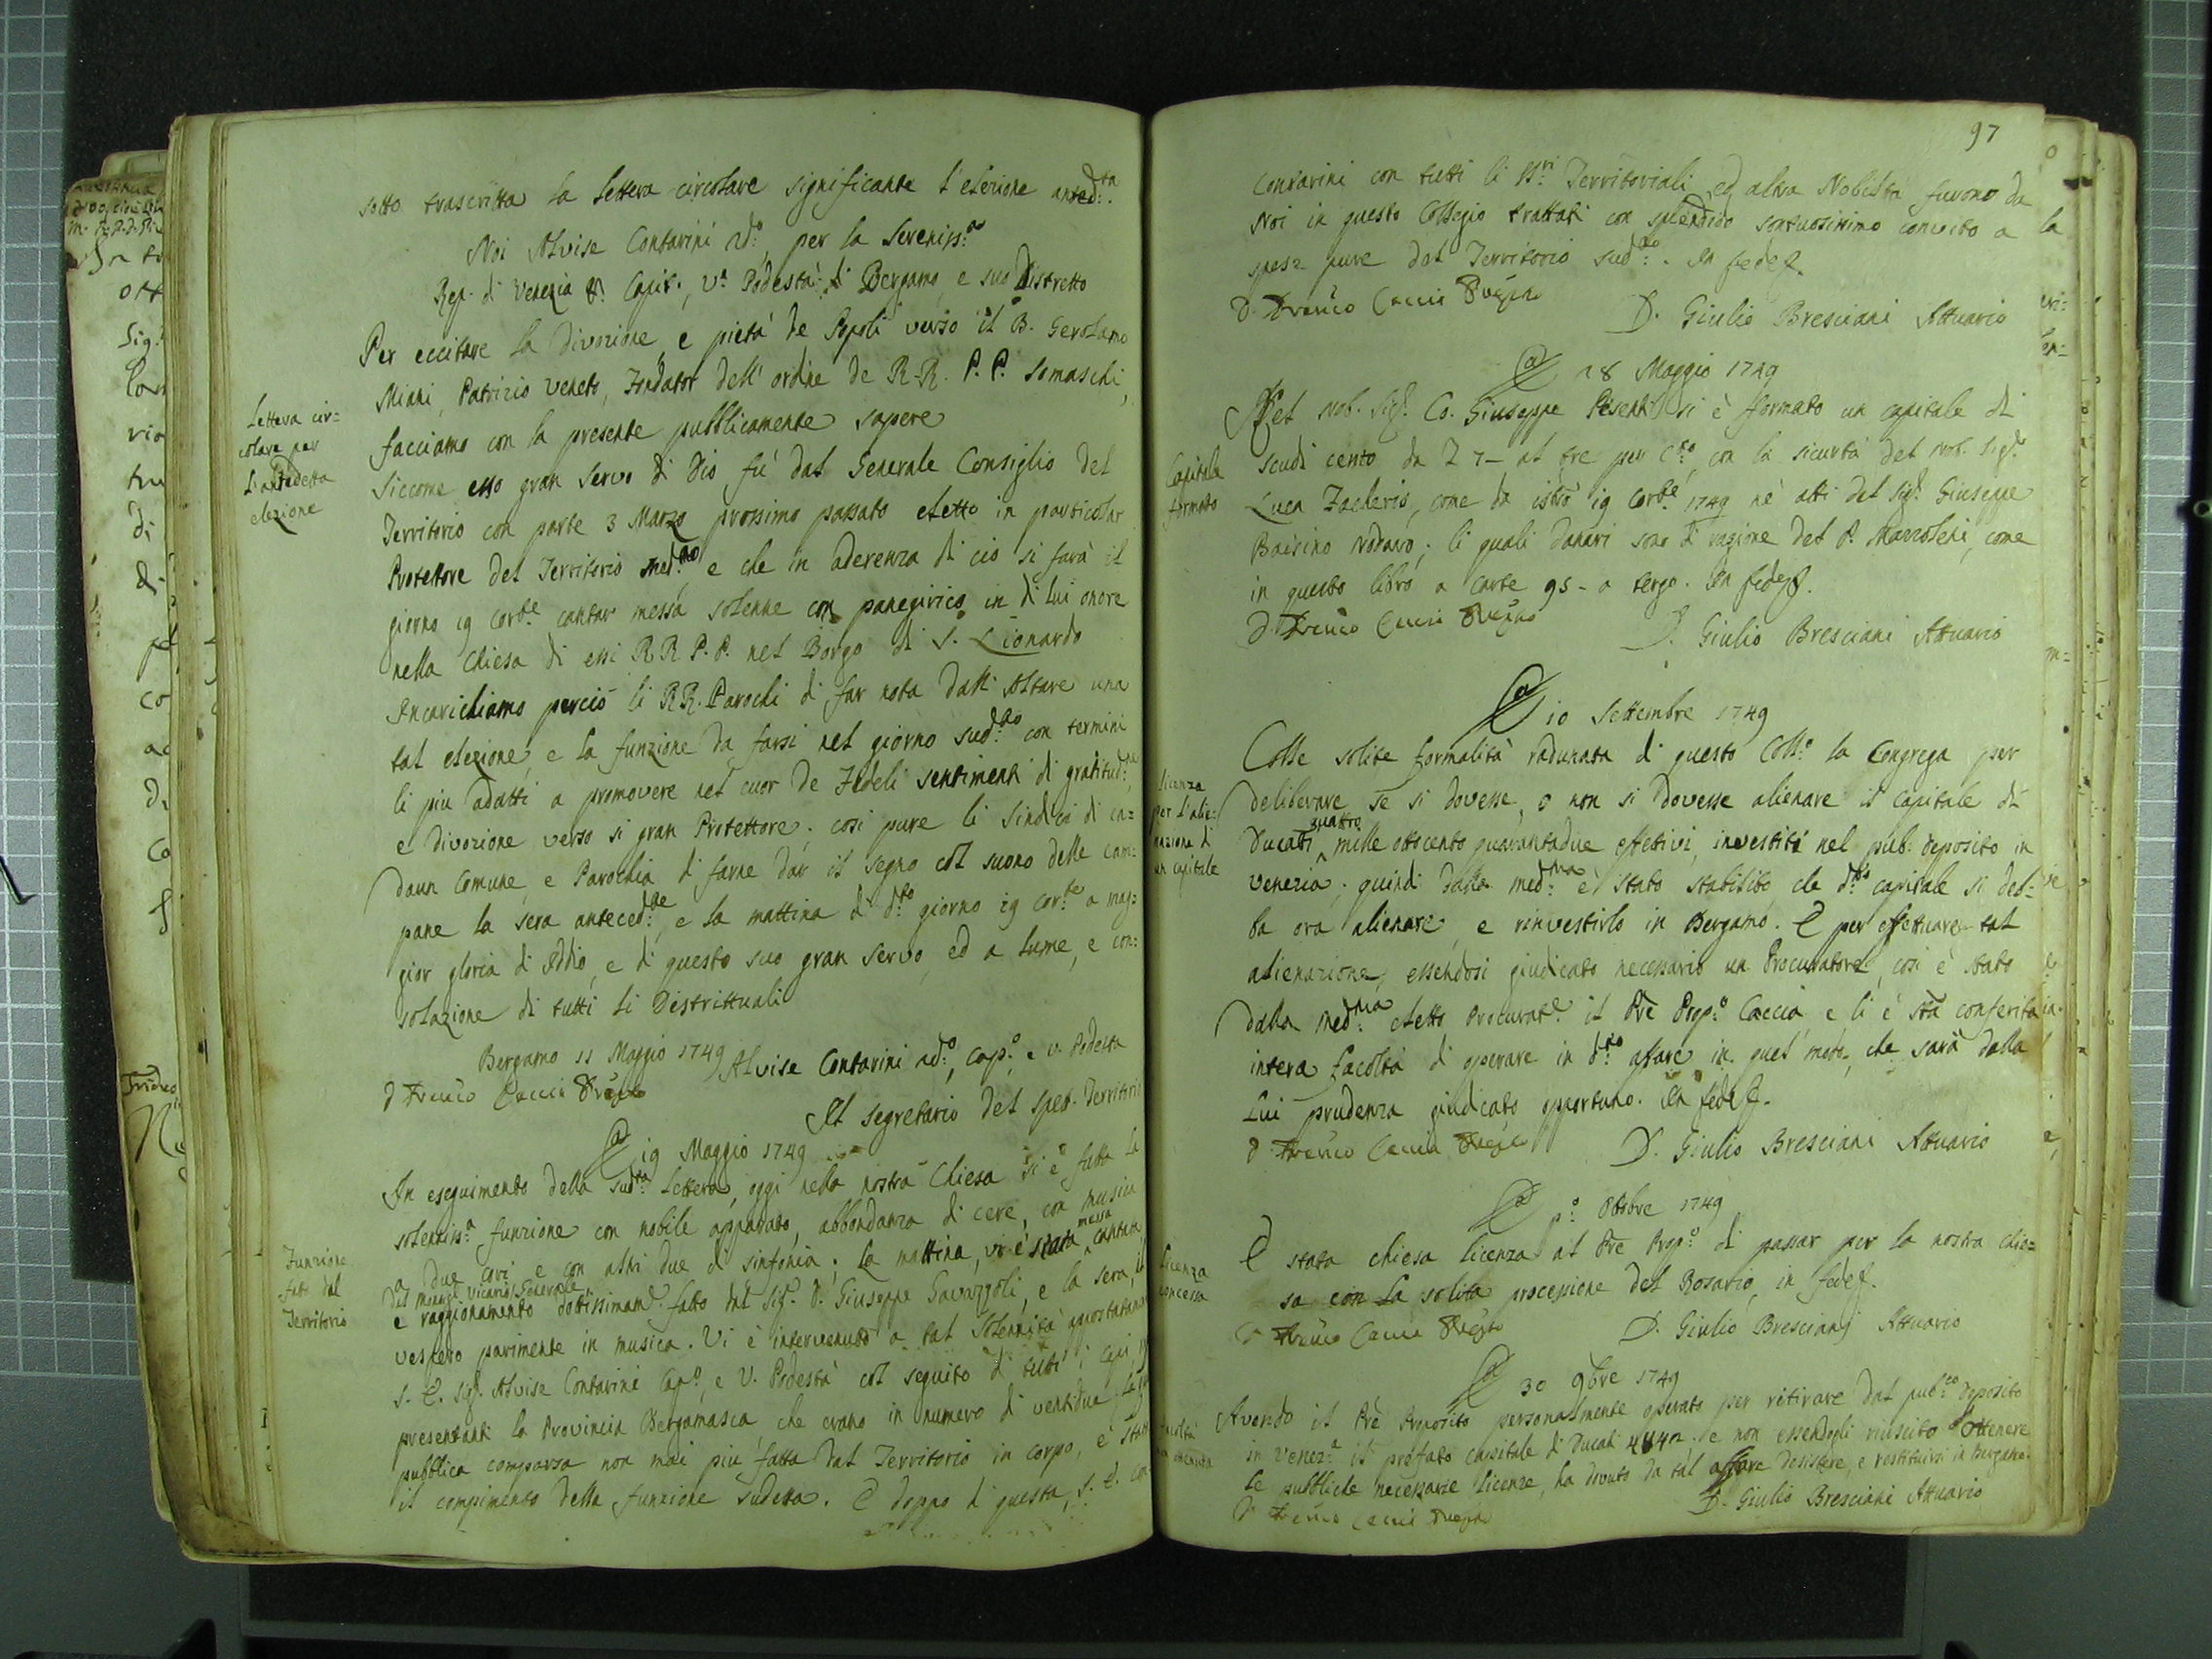 sotto trascritta la lettera circolare significante l'elezione anted:ta
Noi Alvise Contarini 2do, per la Sereniss:a
Rep. di Venezia &: Capit., V.a Podestà di Bergamo, e suo Distretto
Per eccitare la divozione, e pietà de Popoli verso il B. Gerolamo
Miani, Patrizio Veneto, Fondator dell'ordine de R.R. P.P. Somaschi,
facciamo con la presente pubblicamente sapere
Lettera cir=
colare per
l'antedetta
elezione
Siccome esso gran Servo di Dio, fù dal Generale Consiglio del
Territorio con parte 3 Marzo prossimo passato eletto in particolar
Protettore del Territorio med:mo e che in aderenza di ciò si farà il
giorno 19 corr:te cantar messa solenne con panegirico in di lui onore
nella Chiesa di essi R R P.P. nel Borgo di S. Lionardo
Incarichiamo perciò li RR. Parochi di far nota dall'Altare una
tal elezione, e la funzione da farsi nel giorno sud:to con termini
li più adatti a promovere nel cuor de Fedeli sentimenti di gratitud:ne
e divozione verso si gran Protettore; cosi pure li Sindici di ca=
daun Comune, e Parochia di farne dar il segno col suono delle cam=
pane la sera anteced:te, e la mattina di d:to giorno 19 cor:te a mag=
gior gloria di Iddio, e di questo suo gran Servo, ed a lume, e con=
solazione di tutti li Distrittuali
Bergamo 11 Maggio 1749 Alvise Contarini 2do, Cap:o, e V. Podestà
D Franco Caccia
Il segretario del spet. Territorio
19 Maggio 1749
In eseguimento della sud:ta Lettera, oggi nella nostra Chiesa si è fatta la
solenniss:a funzione con nobile apparato, abbondanza di cere, con musica
a due cori e con altri due di sinfonia; la mattina, vi è stata messa cantata
Funzione
fatta dal
Territorio
dal Vicario Generale
e raggionamento dottissimam:e fatto dal Sig.r D. Giuseppe Gavazzoli, e la sera, il
vespero parimente in musica. Vi è intervenuto a tal solennità
S. E. Sig.r Alvise Contarini Cap:o, e V. Podestà col seguito di tutti i
presentanti la Provincia Bergamasca, che erano in numero di ventidue
pubblica comparsa non mai più fatta dal Territorio in corpo, è stata
il compimento della funzione sudetta. E doppo di questa, S. E. Con=
97
Contarini con tutti li SS:ri Territoriali, ed altra Nobiltà furono da
Noi in questo Collegio trattati con splendido sontuosissimo convito a
spese pure del Territorio sud:to. In fede &.
D. Franco Caccia
D. Giulio Bresciani Attuario
28 Maggio 1749
Nel Nob. Sig.r Co. Giuseppe Pesenti si è formato un capitale di
Capitale
formato
scudi cento da £ 7- al tre per C:to, con la sicurtà del Nob. Sig.r
Luca Zacheris, come da istro 19 Corr:te 1749 nè atti del Sig.r Giuseppe
Baisino Nodaro; li quali danari sono di ragione del P. Marzoleni, come
in questo libro a carte 95- a tergo. In fede &.
D. Franco Caccia
D. Giulio Bresciani Attuario
10 Settembre 1749
Colle solite formalità radunata di questo Coll:o la Congrega per
licenza
per l'alie=
nazione di
un capitale
deliberare se si dovesse, o non si dovesse alienare il capitale di
Ducatti quattro mille ottocento quarantadue effettivi, investiti nel pub: deposito in
Venezia; quindi dalla med:ma è stato stabilito che d:to capitale si deb=
ba ora alienare, e rinvestirlo in Bergamo. E per effettuare tal
alienazione, essendosi giudicato necessario un Procuratore, cosi è stato
dalla med:ma eletto Procurat:e il Pre Prep:o Caccia e li è sta conferita
intera facoltà di operare in d:to afare in quel modo, che sarà dalla
Lui prudenza giudicato opportuno. In fede &.
D. Franco Caccia
D. Giulio Bresciani Attuario
p:o Ottobre 1749
Licenza
concessa
E stata chiesa licenza al Pre Prep:o di passar per la nostra chie=
sa con la solita processione del Rosario, in fede &.
D. Franco Caccia
D. Giulio Bresciani Attuario
30 9bre 1749
Avendo il Prè Preposito personalmente operato per ritirare dal pub:co Deposito
in Venez:a il prefato capitale di Ducati 4842. e non essendogli riuscito l'ottenere
le pubbliche necessarie licenze, ha dovuto da tal affare desistere, e restituirsi in Bergamo
D. Franco Caccia
D. Giulio Bresciani Attuario